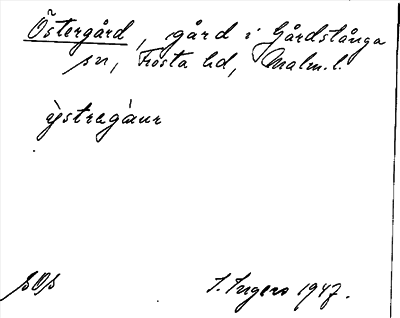 Östergård, gård i Gårdstånga
sn, Frosta hd, Malm. l.
ỳstragáur
SOS I. Ingers 1947.